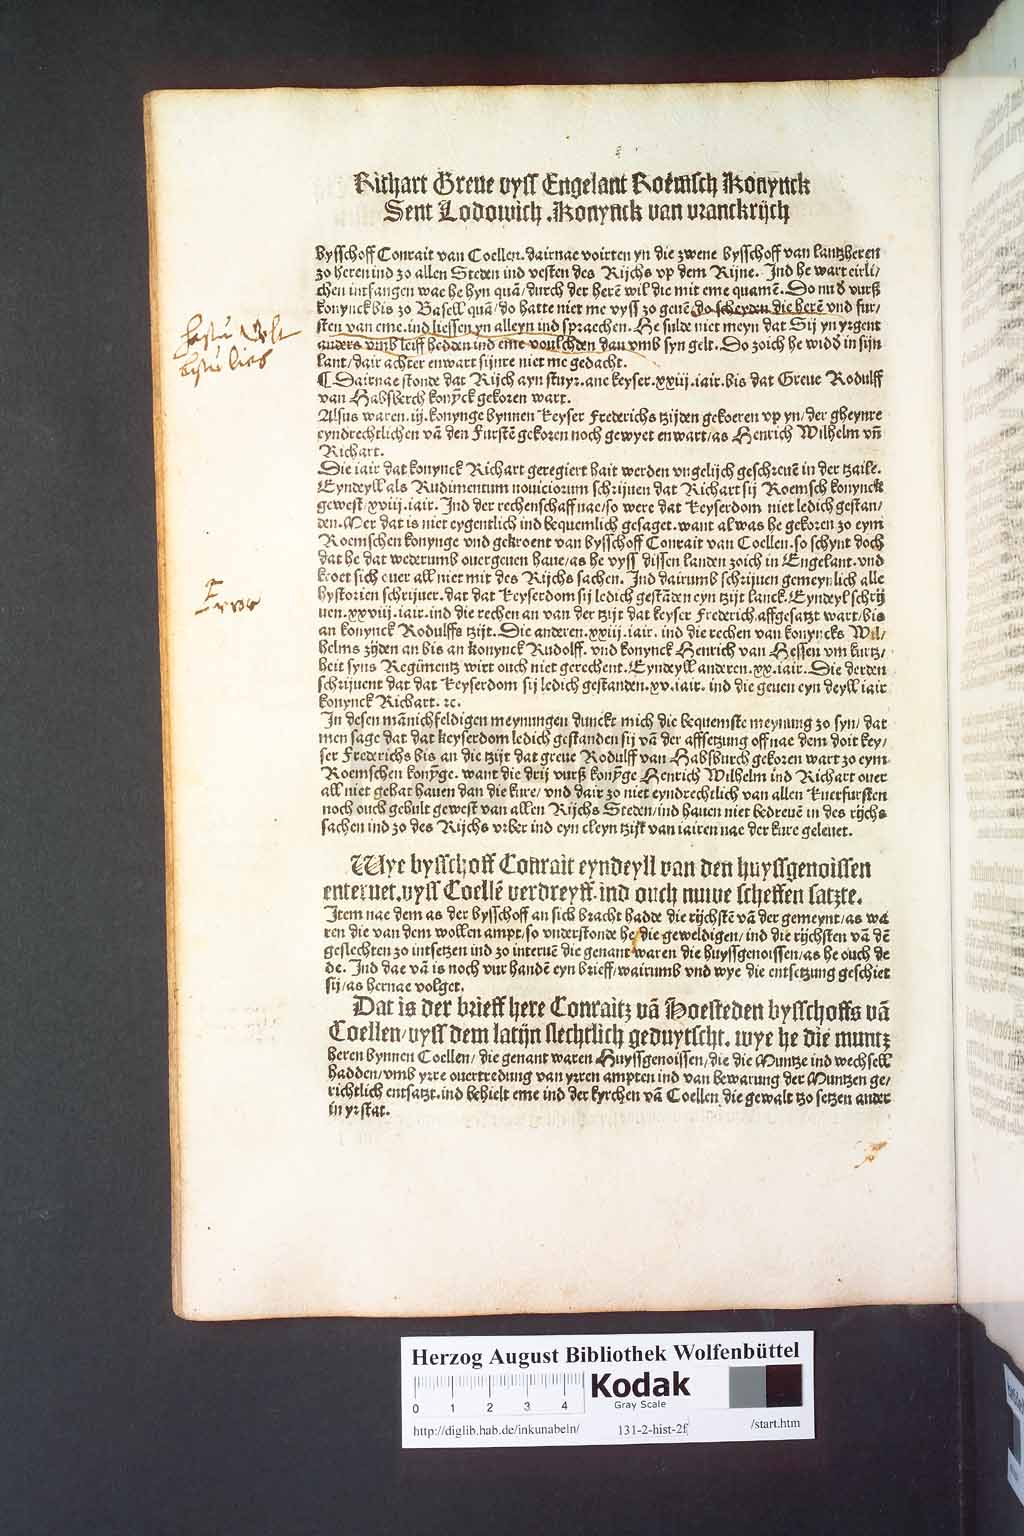 Richart Greue vyss Engelant Roemsch Konynck
Sent Lodowich .Konynck van vranckrijch
bysschoff Conrait van Coellen. dairnae voirten yn die zwene bysschoff van lantzheren
zo heren ind zo allen Steden ind vesten des Rijchs vp dem Rijne. Ind he wart eirli/
chen intfangen wae he hyn quā/durch der herē wil die mit eme quamē. Do nu d vurß
konynck bis zo Basell quā/do hatte niet me vyss zo geuē/do scheyden die herē vnd fur/
sten van eme. ind liessen yn alleyn ind spraechen. He sulde niet meyn dat Sij yn yrgent
anders vmb leiff hedden ind eme voulchden dan vmb syn gelt. Do zoich he widd in sijn
lant/dair achter en wart sijnre niet me gedacht.
¶ Dairnae stonde dat Rijch ayn stuyr. ane keyser. xxiij. iair. bis dat Greue Rodulff
van Habsberch konȳck gekozen wart.
Alsus waren. iij. konynge bynnen Keyser Frederichs tzijden gekoeren vp yn/der gheynre
eyndrechtlichen vā den Furstē gekozen noch gewyet en wart/as Henrich Wilhelm vñ
Richart.
Die iair dat konynck Richart geregiert hait werden vngelijch geschreuē in der tzaile.
Eyndeyll als Rudimentum nouiciorum schrijuen dat Richart sij Roemsch konynck
gewest/xviij. iair. Ind der rechenschaff nae/so were dat Keyserdom niet ledich gestan/
den. Mer dat is niet eygentlich ind bequemlich gesaget. want al was he gekozen zo eym
Roemschen konynge vnd gekroent van bysschoff Conrait van Coellen. so schynt doch
dat he dat wederumb ouergeuen haue/as he vyss dissen landen zoich in Engelant. vnd
kroet sich ouer all niet mit des Rijchs sachen. Ind dairumb schrijuen gemeynlich alle
hystorien schrijuer. dat dat Keyserdom sij ledich gestāden eyn tzijt lanck. Eyndeyl schrij
uen. xxviij. iair. ind die rechen an van der tzijt dat keyser Frederich affgesatzt wart/bis
an konynck Rodulffs tzijt. Die anderen. xxiij. iair. ind die rechen van konyncks Wil/
helms zijden an bis an konynck Rudolff. vnd konynck Henrich van Hessen vm kurtz/
heit syns Regimentz wirt ouch niet gerechent. Eyndeyll anderen. xx. iair. Die derden
schrijuent dat dat Keyserdom sij ledich gestanden. xv. iair. ind die geuen eyn deyll iair
konynck Richart. ꝛc.
In desen mānichfeldigen meynungen dunckt mich die bequemste meynung zo syn/dat
men sage dat dat keyserdom ledich gestanden sij vā der affsetzung off nae dem doit key/
ser Frederichs bis an die tzijt dat greue Rodulff van Habsburch gekozen wart zo eym
Roemschen konȳge. want die drij vurß konȳge Henrich Wilhelm ind Richart ouer
all niet gehat hauen dan die kure/vnd dair zo niet eyndrechtlich van allen Kuerfursten
noch ouch gehult gewest van allen Rijchs Steden/ind hauen niet bedreuē in des rijchs
sachen ind zo des Rijchs vrber ind eyn cleyn tzijt van iairen nae der kure geleuet.
Wye bysschoff Conrait eyndeyll van den huyssgenoissen
enteruet. vyss Coellē verdreyff. ind ouch nuwe scheffen satzte.
Item nae dem as der bysschoff an sich bracht hadde die rijchstē vā der gemeynt/as wa
ren die van dem wollen ampt/so vnderstonde he/die geweldigen/ind die rijchsten vā dē
geslechten zo intsetzen ind zo interuē die genant waren die huyssgenoissen/as he ouch de
de. Ind dae vā is noch vur handē eyn brieff/wairumb vnd wye die entsetzung geschiet
sij/as hernae volget.
Dat is der brieff here Conraitz vā Hoesteden bysschoffs vā
Coellen/vyss dem latijn slechtlich geduytscht. wye he die muntz
heren bynnen Coellen/die genant waren Huyssgenoissen/die die Muntze ind wechsell
hadden/vmb yrre ouertredung van yrren ampten ind van bewarung der Muntzen ge/
richtlich entsatzt. ind behielt eme ind der kyrchen vā Coellen die gewalt tzo setzen ander
in yr stat.
hastu Gelt
bistu lieb
Error
Herzog August Bibliothek Wolfenbüttel
0 1 2 3 4
Kodak
Gray Scale
http://diglib.hab.de/inkunabeln/ 131-2-hist-2f /start.htm